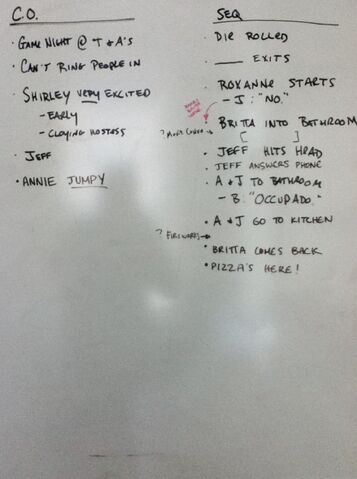 C.O.
· GAME NIGHT @ T & A'S
· CAN'T RING PEOPLE IN
· SHIRLEY VERY EXCITED
- EARLY
- CLOYING HOSTESS
· JEFF
· ANNIE JUMPY
SEQ
· DIE ROLLED
· ____ EXITS
· ROXANNE STARTS
- J: "NO."
· BRITTA INTO BATHROOM
[ ]
· JEFF HITS HEAD
· JEFF ANSWERS PHONE
· A & J TO BATHROOM
- B: "OCCUPADO."
· A & J GO TO KITCHEN
? FIREWORKS →
· BRITTA COMES BACK
· PIZZA'S HERE!